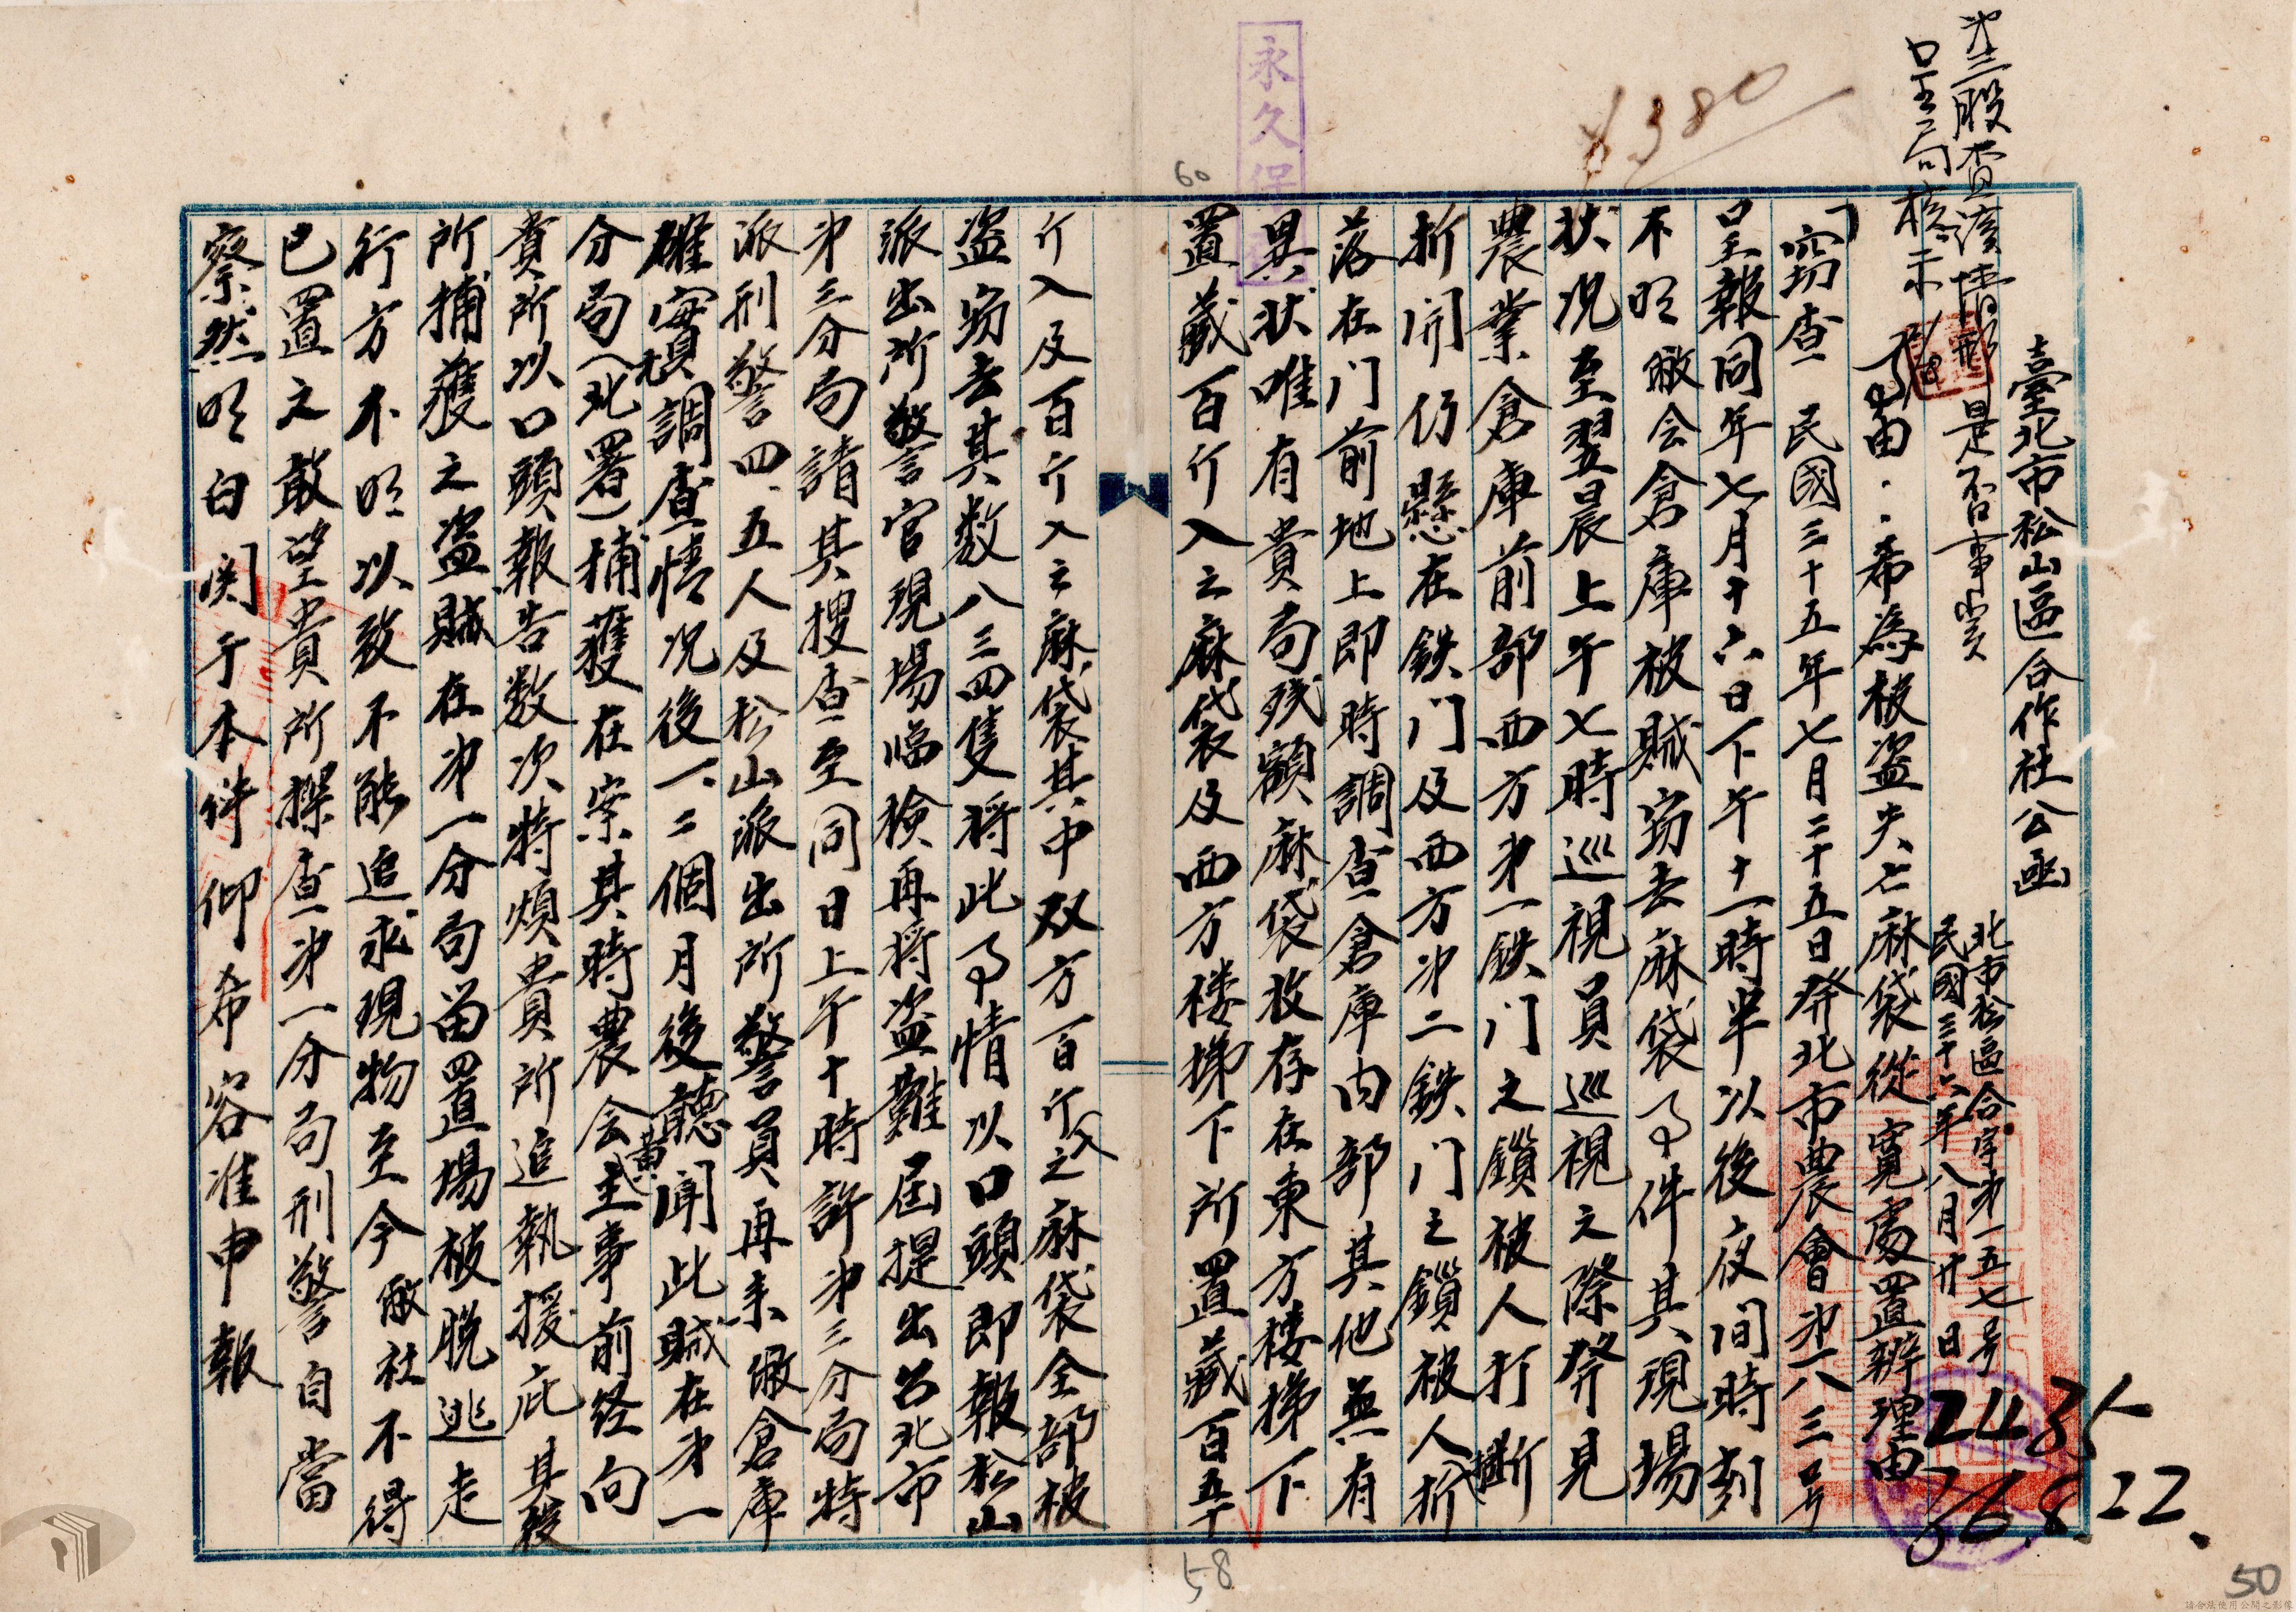 第三股查該情形是否事実
呈局核示
臺北市松山區合作社公函
北市松區合字第一五七号
民國三十六年八月廿日
事由：希為被盗失亡麻袋從寬處置辨理由
「窃查民國三十五年七月二十五日發北市農會第八三号
呈報同年七月十六日下午十一時半以後夜间時刻
不明敝会倉庫被賊窃去麻袋事件其現場
状况至翌晨上午七時巡視員巡視之際發見
農業倉庫前部西方第一鉄门之鎖被人打断
折開仍懸在鉄门及西方第二鉄门之鎖被人折
落在门前地上即時調查倉庫内部其他無有
異状唯有貴局残額麻袋收存在東方楼梯下
置藏百斤入之麻袋及西方楼梯下所置藏百五十
斤入及百斤入之麻袋其中双方百斤入之麻袋全部被
盗窃去其数八三四隻将此事情以口頭即報松山
派出所警官現場臨検再将盗難屆提出台北市
第三分局請其搜查至同日上午十時許第三分局特
派刑警四、五人及松山派出所警員再来敝倉庫
確實調查情况後一、二個月後聽聞此賊在第一
分局(北署)捕獲在案其時農会黄主事前经向
貴所以口頭報告数次特煩貴所追執援庇其後
所捕獲之盗賊在第一分局留置場被脱逃走
行方不明以致不能追求現物至今敝社不得
已置之敢望貴所探查第一分局刑警自當
察然明白関于本件仰希容准申報
永久保
¥380
2485
36.8.22.
60
58
50